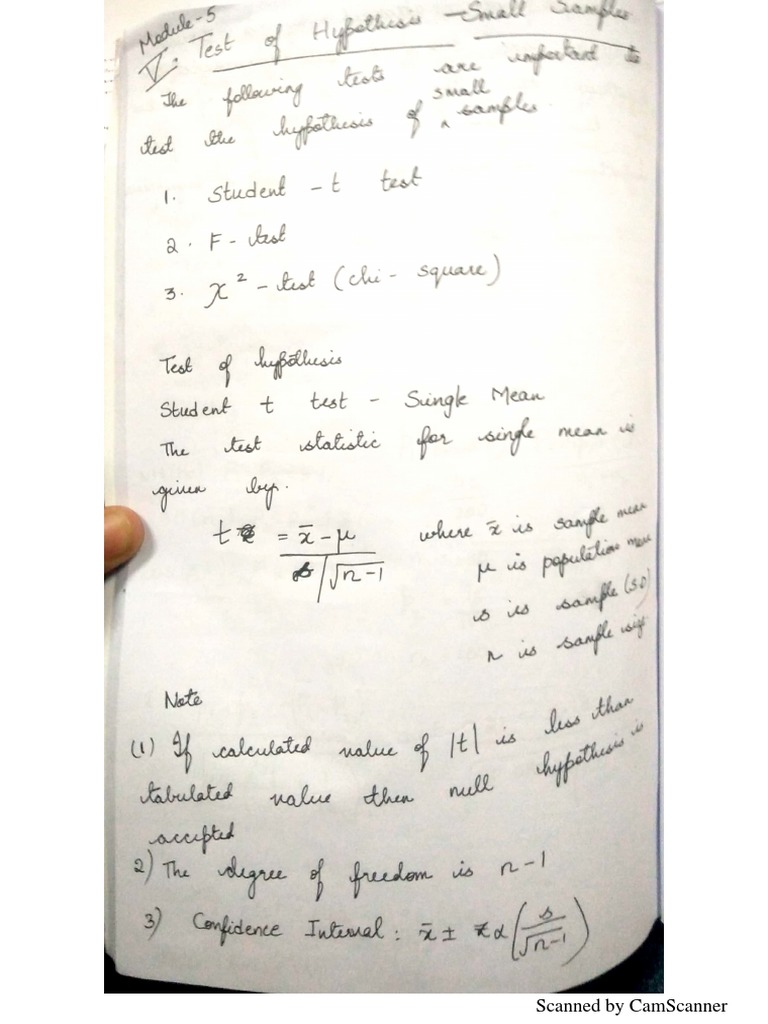 Module-5
V. Test of Hypothesis - Small Samples
The following tests are important to
test the hypothesis of small samples.
1. Student - t test
2. F - test
3. χ² - test (chi - square)
Test of hypothesis
Student t test - Single Mean
The test statistic for single mean is
given by.
t = x̄ - μ / s/√n-1 where x̄ is sample mean
μ is population mean
s is sample (S.D)
n is sample size
Note
(1) If calculated value of |t| is less than
tabulated value then null hypothesis is
accepted
2) The degree of freedom is n-1
3) Confidence Interval : x̄ ± tα (s/√n-1)
Scanned by CamScanner